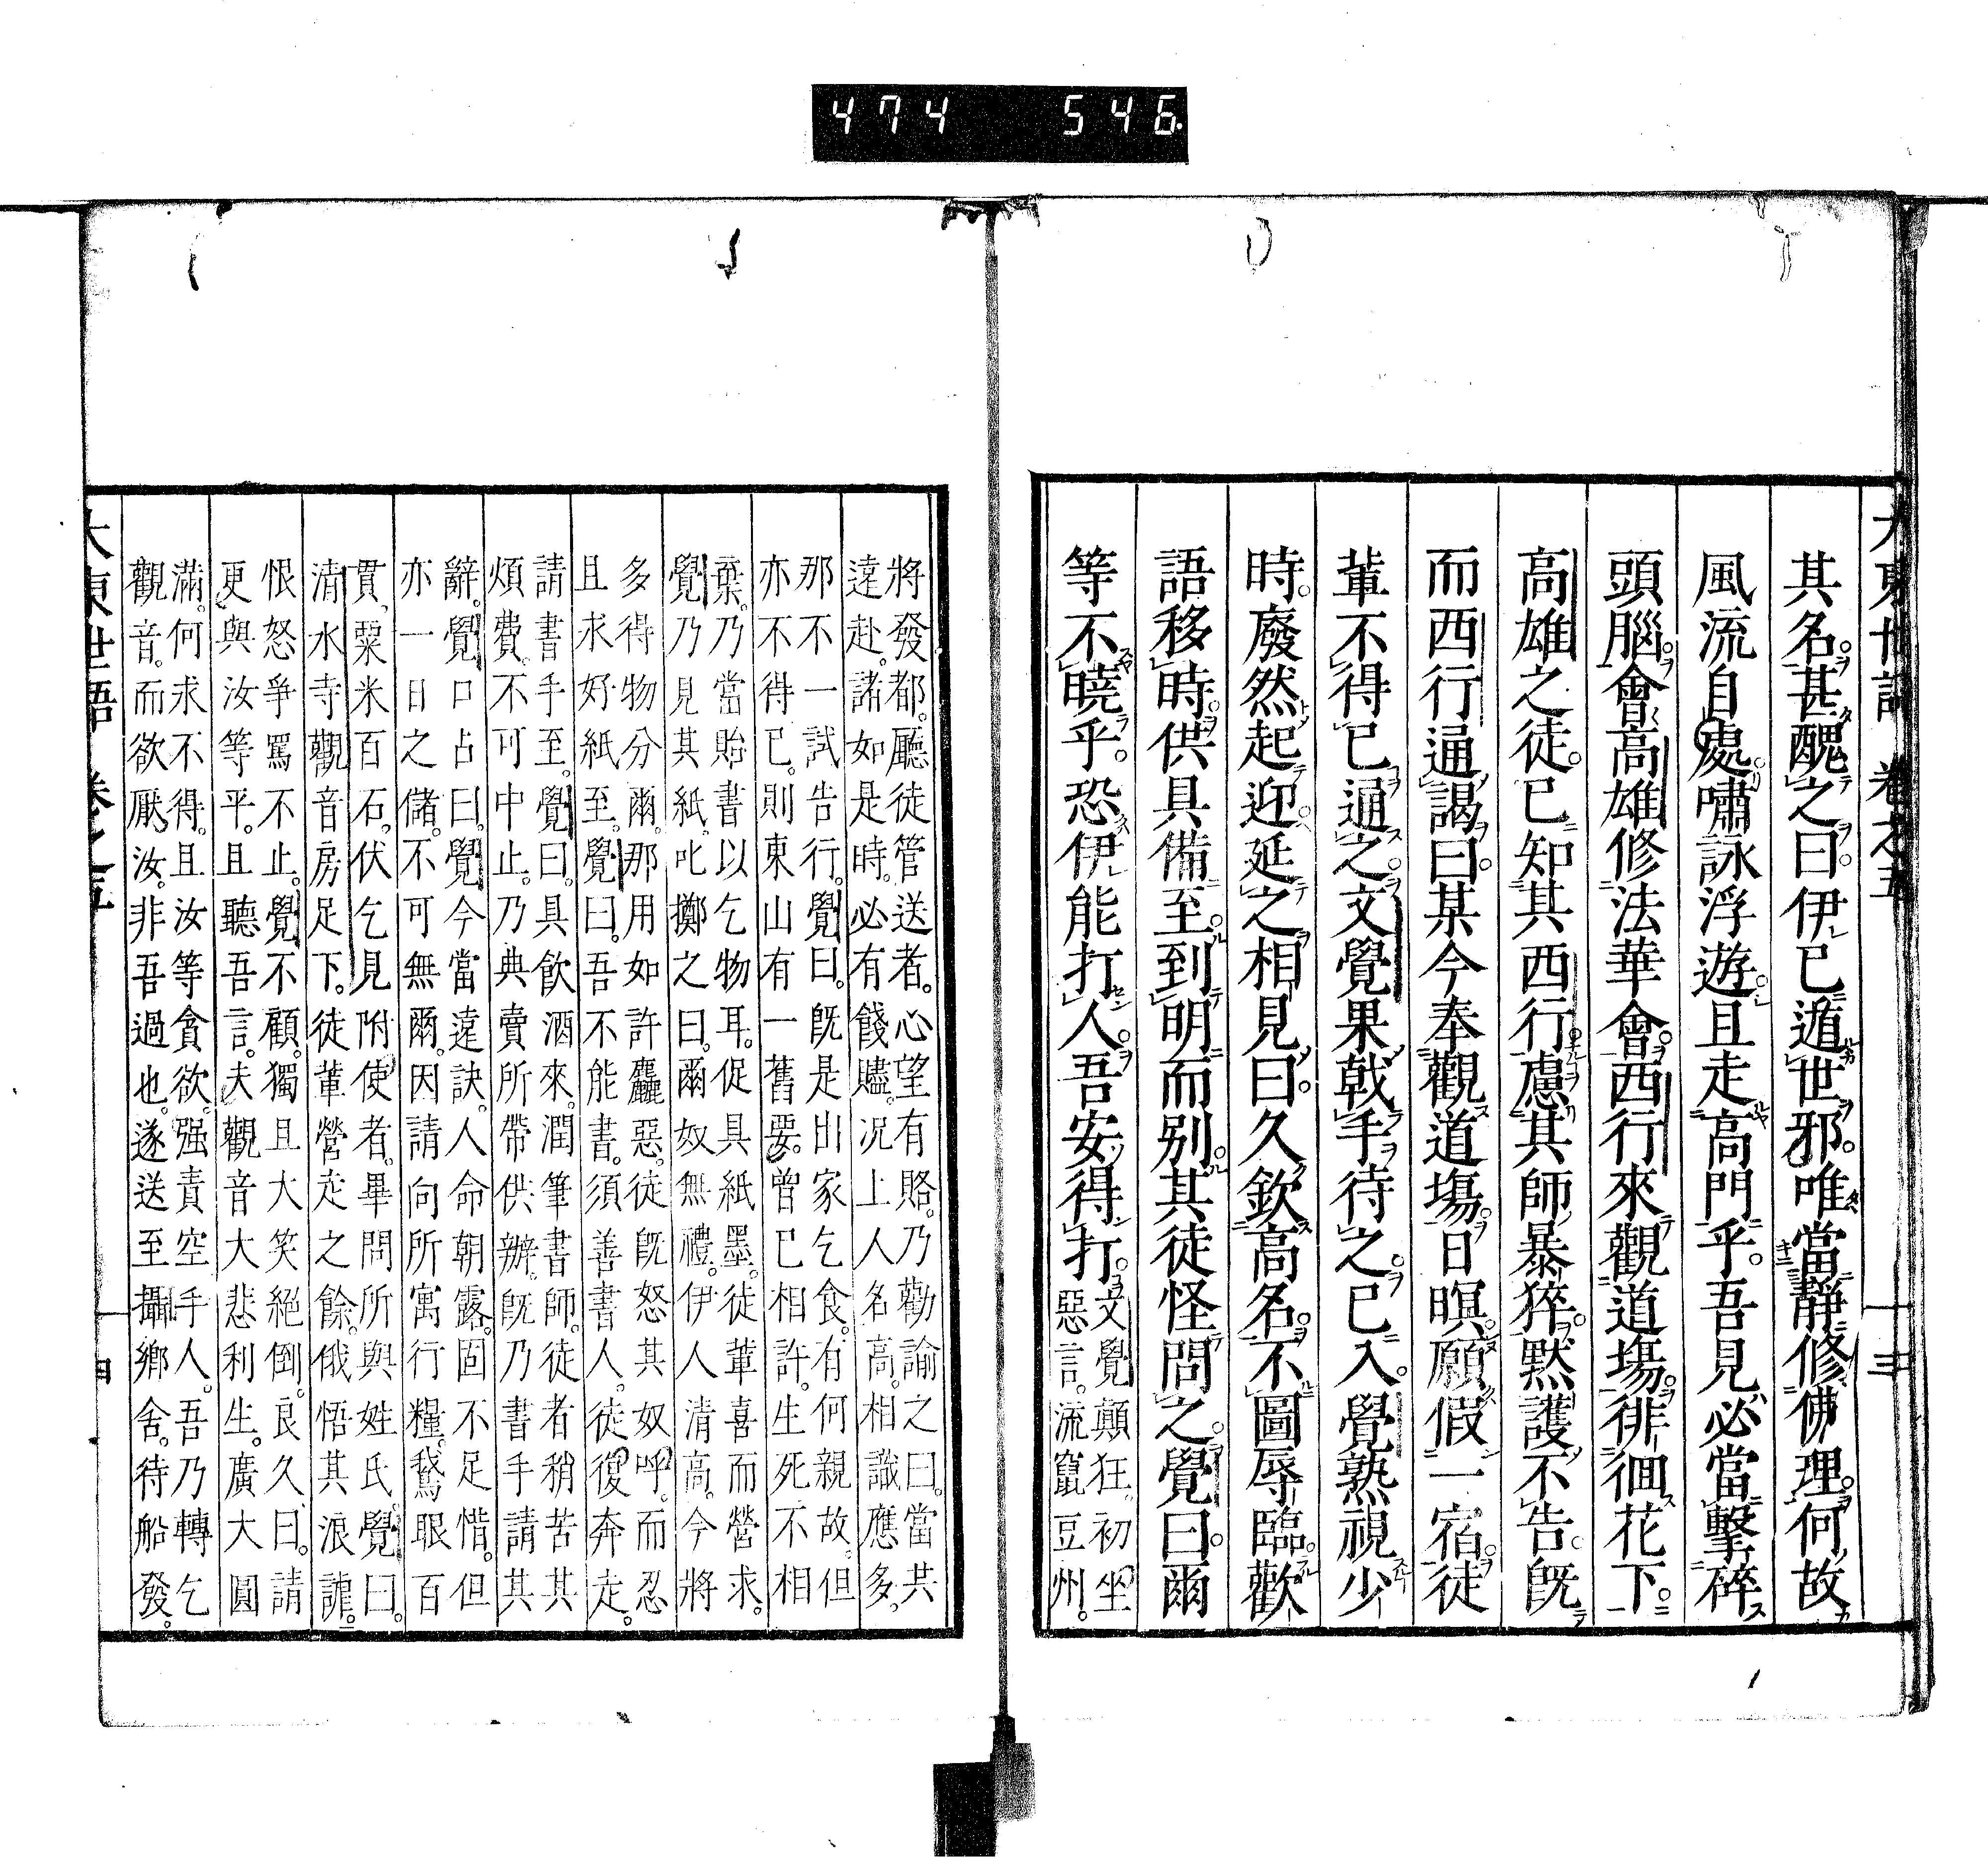 474 546
大東世語 卷之五 三
其名甚醜之曰伊已遁世邪唯當靜修佛理何故
風流自處嘯詠浮遊且走高門乎吾見必當擊碎
頭腦會高雄修法華會西行來觀道場徘徊花下
高雄之徒已知其西行慮其師暴猝默護不告既
而西行通謁曰某今奉觀道場日暝願假一宿徒
輩不得已通之文覺果戟手待之已入覺熟視少
時廢然起迎延之相見曰久欽高名不圖辱臨歡
語移時供具備至到明而別其徒怪問之覺曰爾
等不曉乎恐伊能打人吾安得打
文覺顛狂初坐
惡言流竄豆州。
將發都。廳徒管送者。心望有賂。乃勸諭之曰。當共
遠赴。諸如是時。必有餞贐。況上人名高。相識應多。
那不一試告行。覺曰。既是出家乞食。有何親故。但
亦不得已。則東山有一舊要。曾已相許。生死不相
棄。乃當貽書以乞物耳。促具紙墨。徒輩喜而營求。
覺乃見其紙。叱擲之曰。爾奴無禮。伊人清高。今將
多得物分爾。那用如許麤惡。徒既怒其奴呼。而忍
且求好紙至。覺曰。吾不能書。須善書人。徒復奔走。
請書手至。覺曰。具飲酒來。潤筆書師。徒者稍苦其
煩費。不可中止。乃典賣所帶供辦。既乃書手請其
辭。覺口占曰。覺今當遠訣。人命朝露。固不足惜。但
亦一日之儲。不可無爾。因請向所寓行糧。鵞眼百
貫。粟米百石。伏乞見附使者。畢問所與姓氏。覺曰。
清水寺觀音房足下。徒輩營走之餘。俄悟其浪謔。
恨怒爭罵不止。覺不顧。獨且大笑絕倒。良久曰。請
更與汝等平。且聽吾言。夫觀音大悲利生。廣大圓
滿。何求不得。且汝等貪欲。强責空手人。吾乃轉乞
觀音。而欲厭汝。非吾過也。遂送至攝鄉舍。待船發。
大東世語 卷之五 四